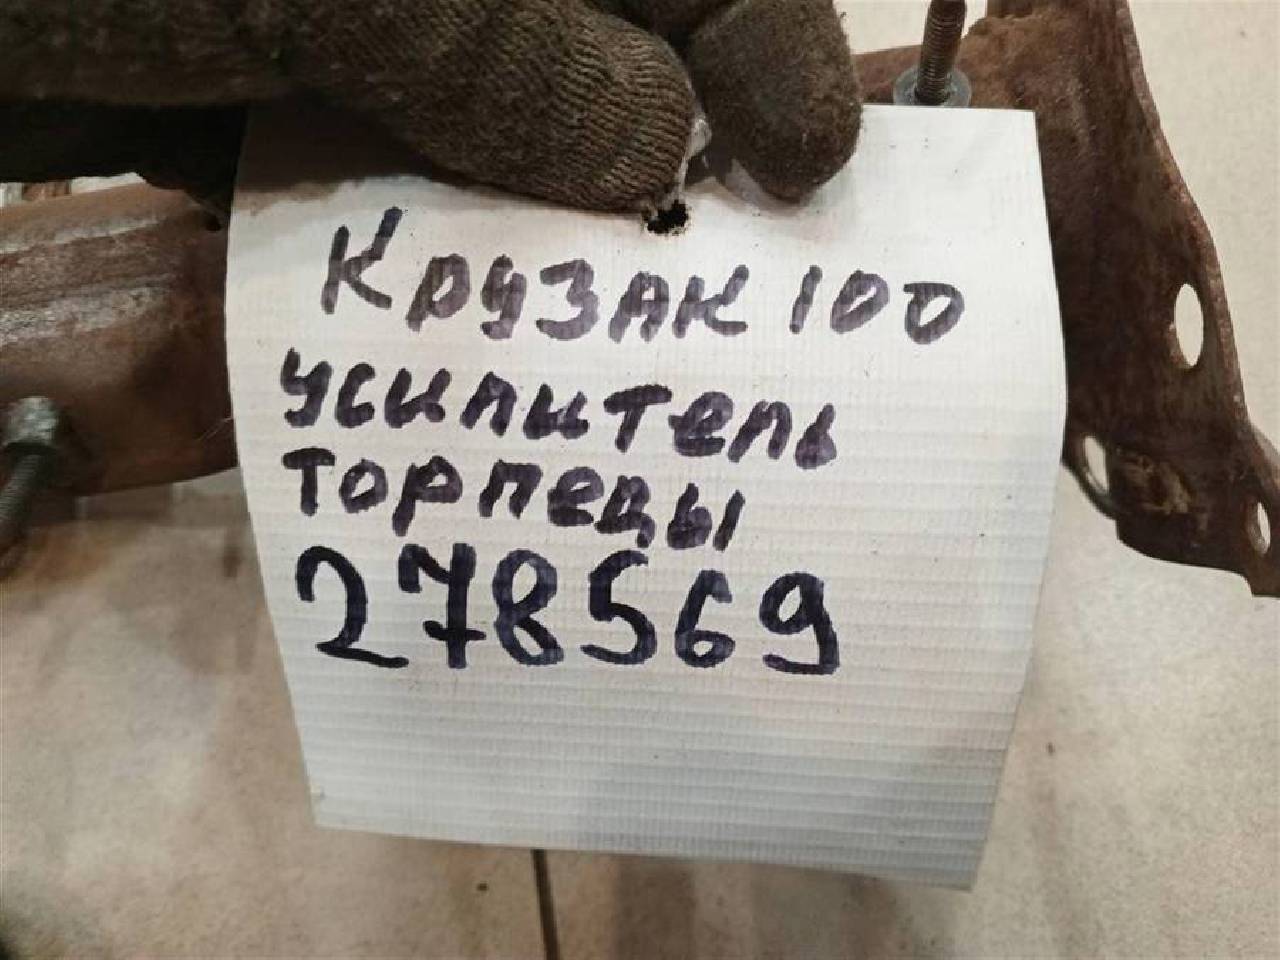 Крузак 100
усилитель
торпеды
278569